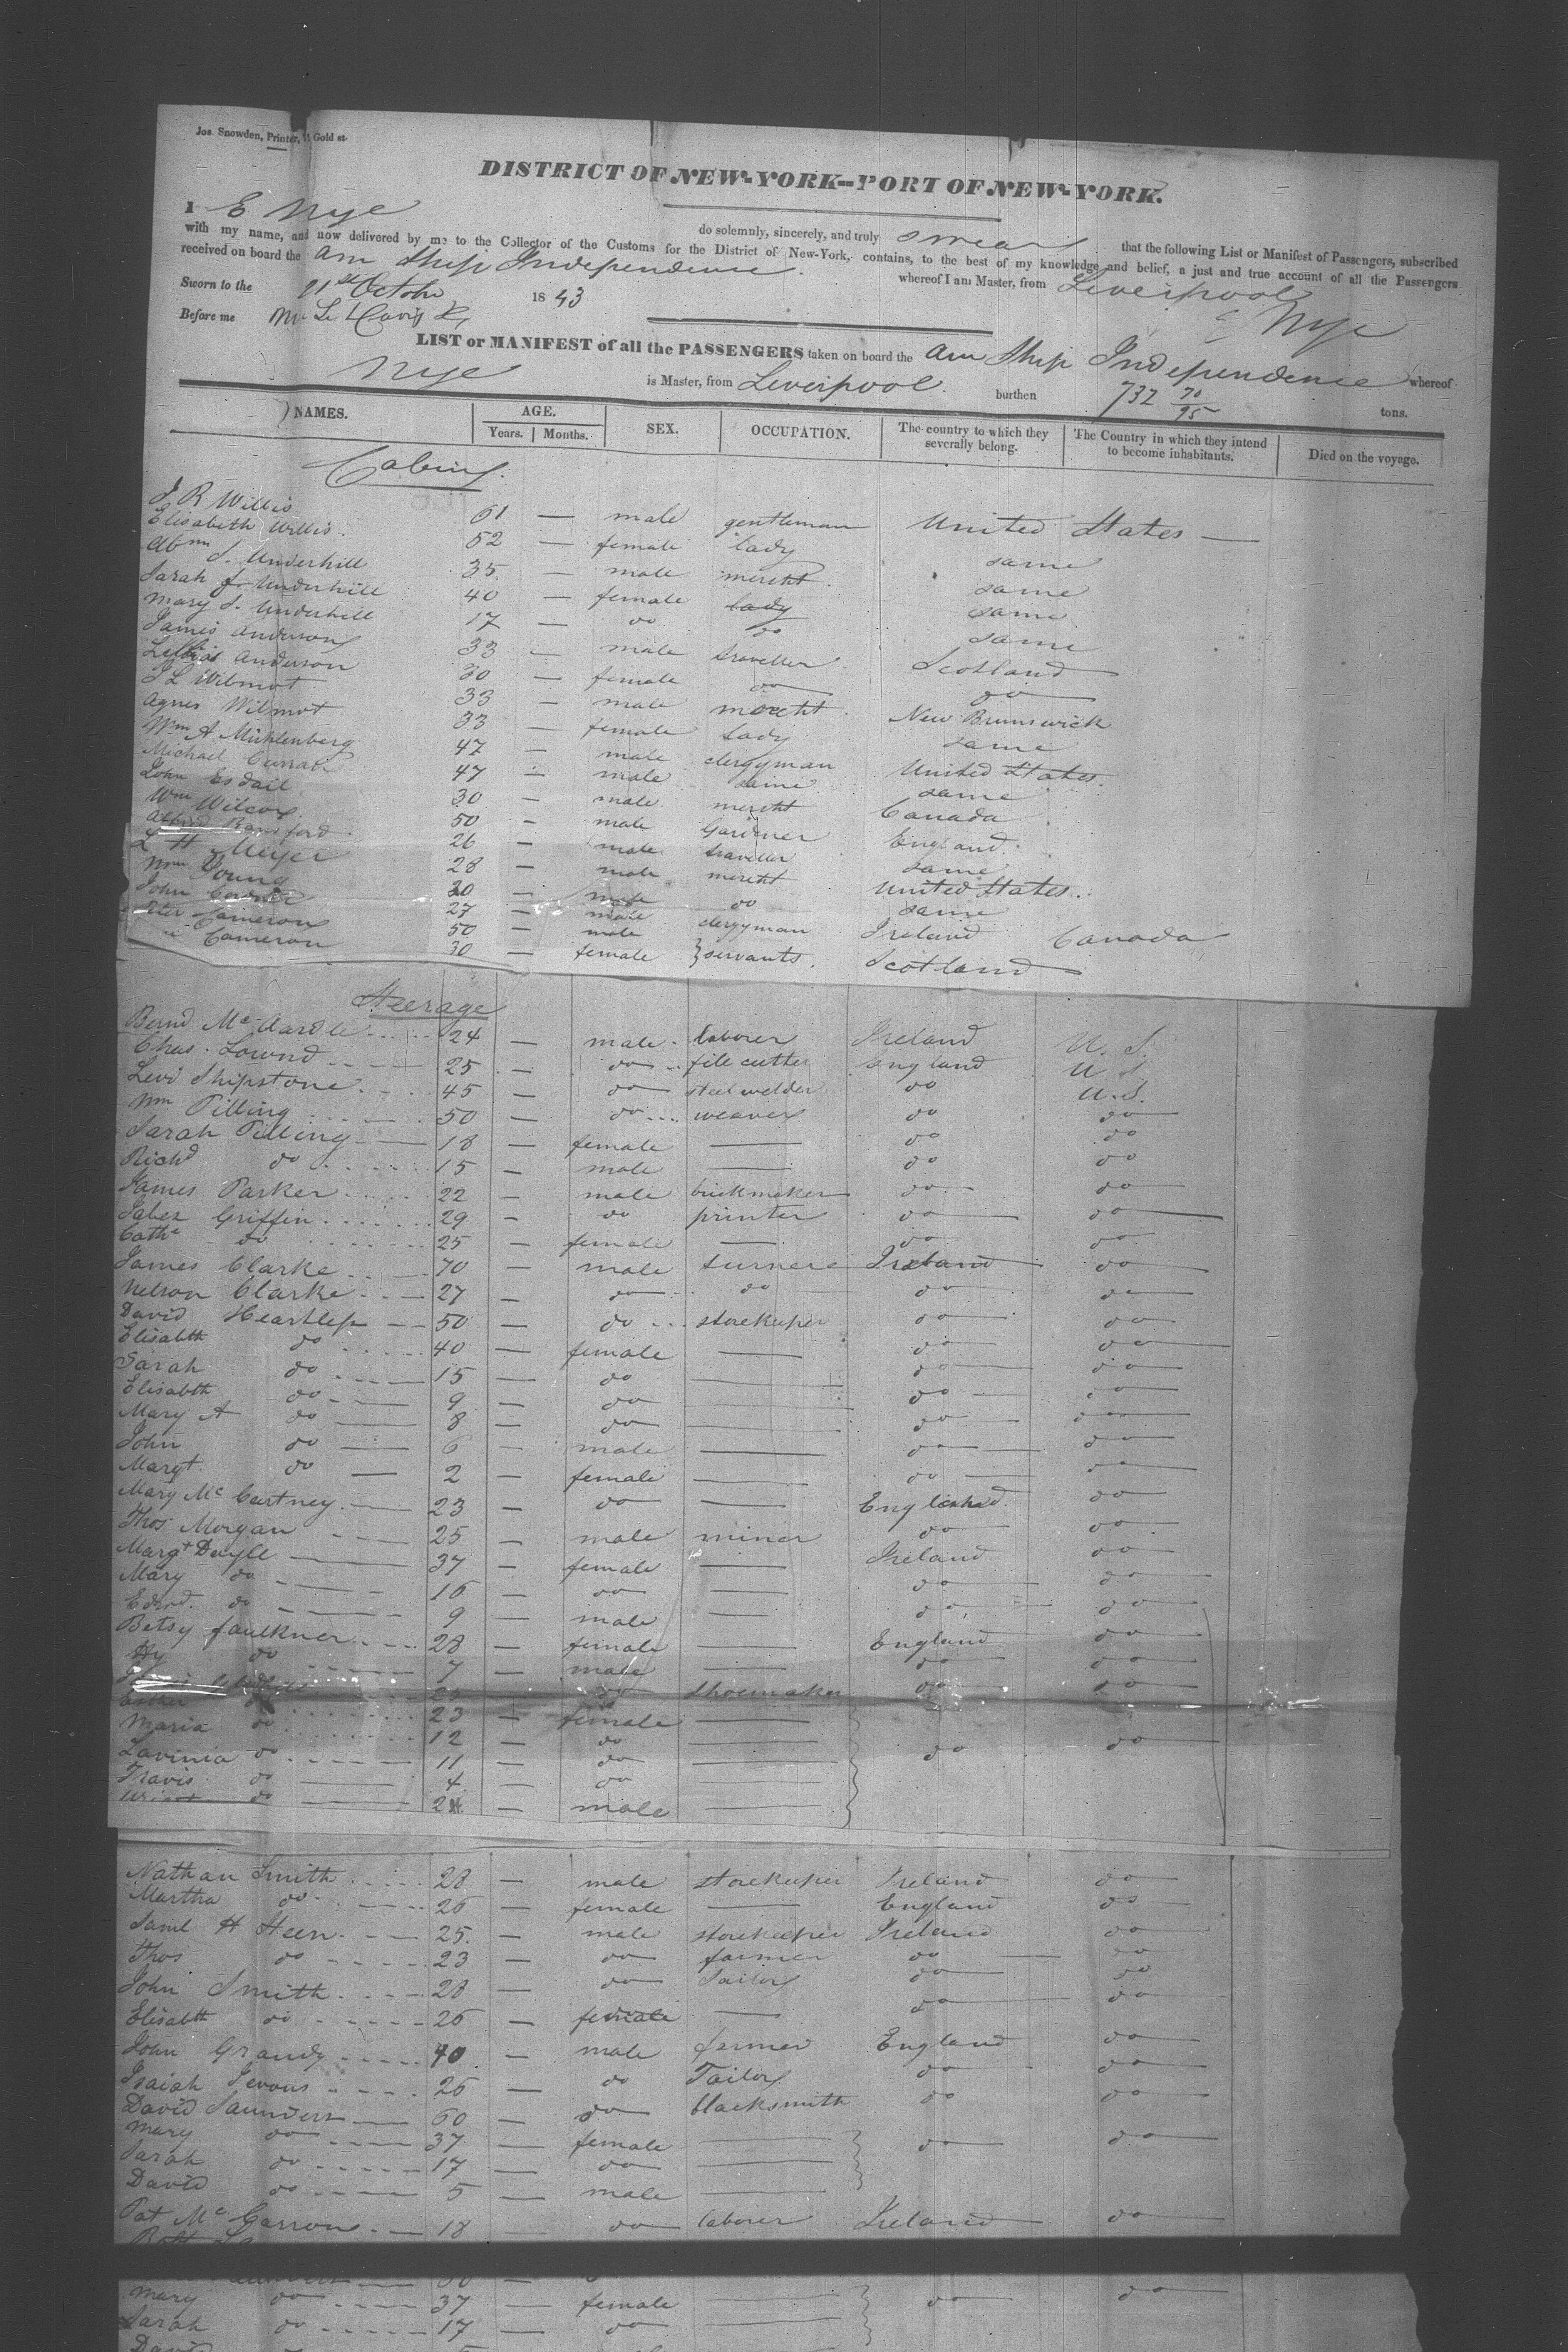 Jos. Snowden, Printer, Gold st.
DISTRICT OF NEW-YORK--PORT OF NEW-YORK.
I E Nye do solemnly, sincerely, and truly swear that the following List or Manifest of Passengers, subscribed
with my name, and now delivered by me to the Collector of the Customs for the District of New-York, contains, to the best of my knowledge and belief, a just and true account of all the Passengers
received on board the Am Ship Independence whereof I am Master, from Liverpool
Sworn to the 21st October 1843 E Nye
Before me
LIST or MANIFEST of all the PASSENGERS taken on board the Am Ship Independence whereof
Nye is Master, from Liverpool. burthen 732 70/95 tons.
NAMES. AGE. Years. Months. SEX. OCCUPATION. The country to which they severally belong. The Country in which they intend to become inhabitants. Died on the voyage.
Cabins.
J R Willis 61 — male gentleman United States —
Elisabeth Willis. 52 — female lady same
Abm S. Underhill 35 — male mercht. same
Sarah Underhill 40 — female lady same
Mary S. Underhill 17 — do do same
James Anderson 33 — male traveller Scotland
Anderson 30 — female do do
J L Wilmot 33 — male mercht. New Brunswick
Agnes Wilmot 33 — female Lady same
Wm A Muhlenberg 47 — male clergyman United States.
Michael Curran 47 — male same same
John Esdail 30 — male mercht Canada
Wm Wilcox 50 — male Gardener England.
Alfred 26 — male traveller same
L H Meyer 28 — male mercht United States.
Wm Young 30 — male do same
John 27 — male clergyman Ireland Canada
Peter Cameron 50 — male
Cameron 30 — female } servants. Scotland
Steerage
Bernd McAardle 24 — male laborer Ireland U. S.
Chas. Lownd 25 — do file cutter England U S
Levi Shipstone 45 — do steel welder do U.S.
Wm Pilling 50 — do weaver do do
Sarah Pilling 18 — female — do do
Richd do 15 — male — do do
James Parker 22 — male brickmaker do do
Jabez Griffin 29 — do printer do do
Cathe do 25 — female — do do
James Clarke 70 — male turnere Ireland do
Nelson Clarke 27 — do do do do
David Heartlep 50 — do storekeeper do do
Elisabth do 40 — female — do do
Sarah do 15 — do — do do
Elisabth do 9 — do — do do
Mary A do 8 — do — do do
John do 6 — male — do do
Margt. do 2 — female — do do
Mary McCartney 23 — do — England do
Thos Morgan 25 — male miner do do
Margt Doyle 37 — female — Ireland do
Mary do 16 — do — do do
Edwd. do 9 — male — do do
Betsy Faulkner 28 — female — England do
Hy do 7 — male — do do
25 do shoemaker do do
Esther do 23 — female —
Maria do 12 — do —
Lavinia do 11 — do — do do
Travis do 4 — do —
do 2 — male —
Nathan Smith 28 — male storekeeper Ireland do
Martha do 26 — female — England do
Saml H Steen 25. — male storekeeper Ireland do
Thos do 23 — do farmer do do
John Smith 28 — do Tailor do do
Elisabth do 26 — female — do do
John Grandy 40 — male farmer England do
Isaiah Jevons 26 — do Tailor do do
David Saunders 60 — do blacksmith do do
Mary do 37 — female —
Sarah do 17 — do — do do
David do 5 — male —
Pat McCarron 18 do laborer Ireland do
Mary do 37 — female — do do
Sarah do 17 — do
David